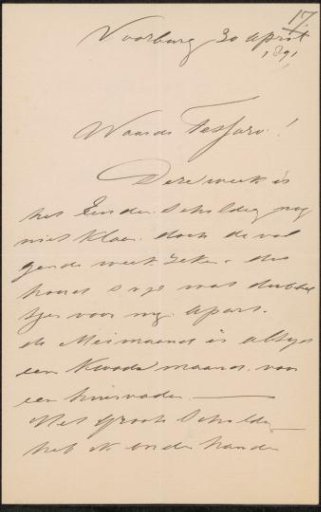 17
Voorburg 30 April
1891
Waarde Tessaro!
Deze week is
het Einder Schildery nog
niet klaar. doch de vol
gende week zeker. dus
houdt U zes wat dubbel
tjes voor my. apart.
de Meimaand is altyd
een kwade maand voor
een huisvader.
Het groote Schildery
heb ik onder handen